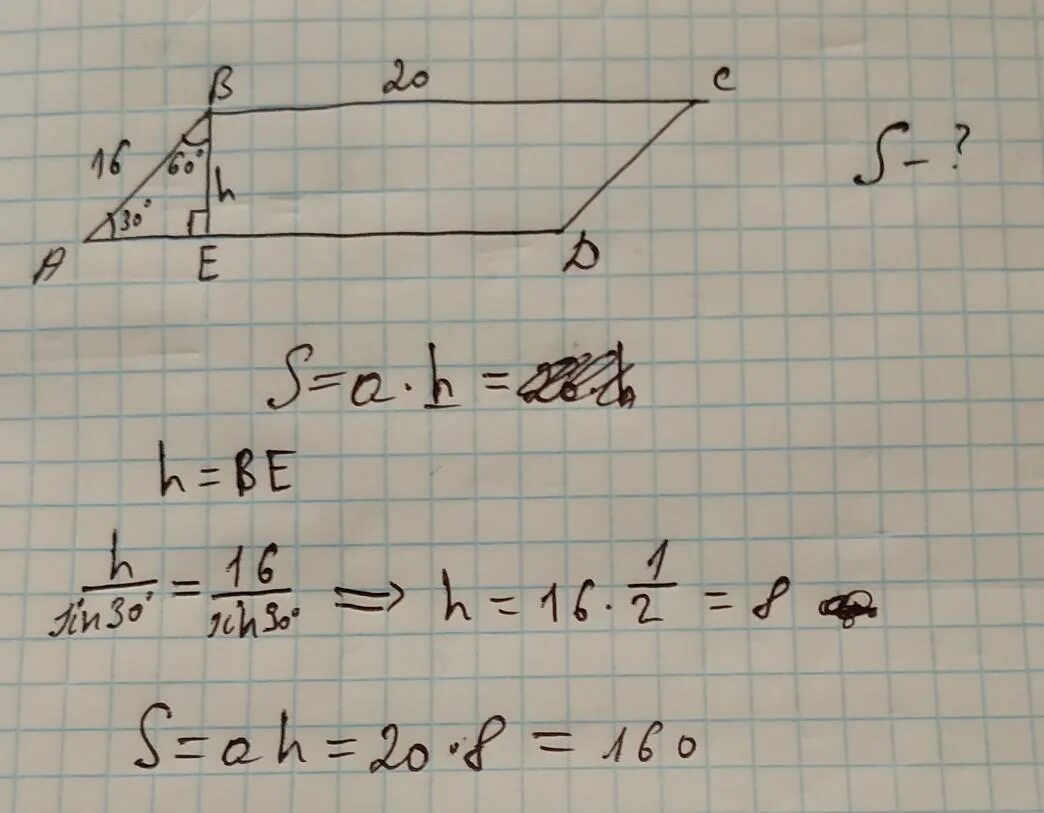 B 20 C
16 60° h S - ?
30°
A E D
S = a · h =
h = BE
h/sin30° = 16/sin90° ⟹ h = 16 · 1/2 = 8
S = ah = 20 · 8 = 160